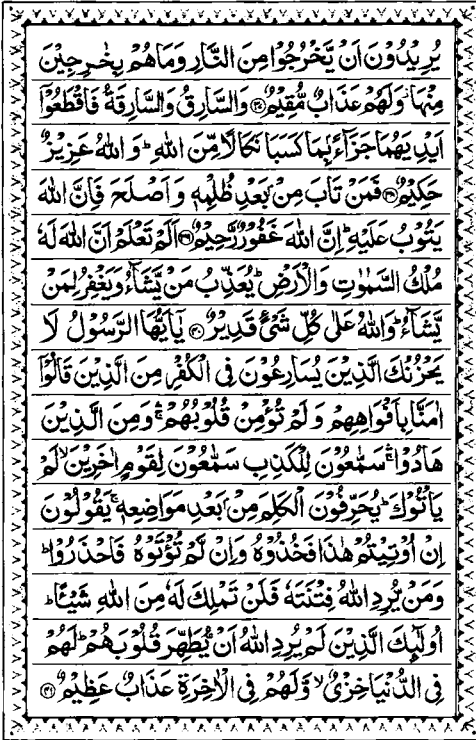 يُرِيْدُوْنَ اَنْ يَّخْرُجُوْا مِنَ النَّارِ وَمَا هُمْ بِخٰرِجِيْنَ
مِنْهَا ۫ وَلَهُمْ عَذَابٌ مُّقِيْمٌ ﴿۳۷﴾ وَالسَّارِقُ وَالسَّارِقَةُ فَاقْطَعُوْۤا
اَيْدِيَهُمَا جَزَآءًۢ بِمَا كَسَبَا نَكَالًا مِّنَ اللّٰهِ ؕ وَاللّٰهُ عَزِيْزٌ
حَكِيْمٌ ﴿۳۸﴾ فَمَنْ تَابَ مِنْۢ بَعْدِ ظُلْمِهٖ وَاَصْلَحَ فَاِنَّ اللّٰهَ
يَتُوْبُ عَلَيْهِ ؕ اِنَّ اللّٰهَ غَفُوْرٌ رَّحِيْمٌ ﴿۳۹﴾ اَلَمْ تَعْلَمْ اَنَّ اللّٰهَ لَهٗ
مُلْكُ السَّمٰوٰتِ وَالْاَرْضِ ؕ يُعَذِّبُ مَنْ يَّشَآءُ وَيَغْفِرُ لِمَنْ
يَّشَآءُ ؕ وَاللّٰهُ عَلٰى كُلِّ شَيْءٍ قَدِيْرٌ ﴿۴۰﴾ يٰۤاَيُّهَا الرَّسُوْلُ لَا
يَحْزُنْكَ الَّذِيْنَ يُسَارِعُوْنَ فِي الْكُفْرِ مِنَ الَّذِيْنَ قَالُوْۤا
اٰمَنَّا بِاَفْوَاهِهِمْ وَلَمْ تُؤْمِنْ قُلُوْبُهُمْ ۛۚ وَمِنَ الَّذِيْنَ
هَادُوْا ۛۚ سَمّٰعُوْنَ لِلْكَذِبِ سَمّٰعُوْنَ لِقَوْمٍ اٰخَرِيْنَ ۙ لَمْ
يَاْتُوْكَ ؕ يُحَرِّفُوْنَ الْكَلِمَ مِنْۢ بَعْدِ مَوَاضِعِهٖ ۚ يَقُوْلُوْنَ
اِنْ اُوْتِيْتُمْ هٰذَا فَخُذُوْهُ وَاِنْ لَّمْ تُؤْتَوْهُ فَاحْذَرُوْا ؕ
وَمَنْ يُّرِدِ اللّٰهُ فِتْنَتَهٗ فَلَنْ تَمْلِكَ لَهٗ مِنَ اللّٰهِ شَيْـًٔا ؕ
اُولٰٓئِكَ الَّذِيْنَ لَمْ يُرِدِ اللّٰهُ اَنْ يُّطَهِّرَ قُلُوْبَهُمْ ؕ لَهُمْ
فِي الدُّنْيَا خِزْيٌ ۙ وَّلَهُمْ فِي الْاٰخِرَةِ عَذَابٌ عَظِيْمٌ ﴿۴۱﴾